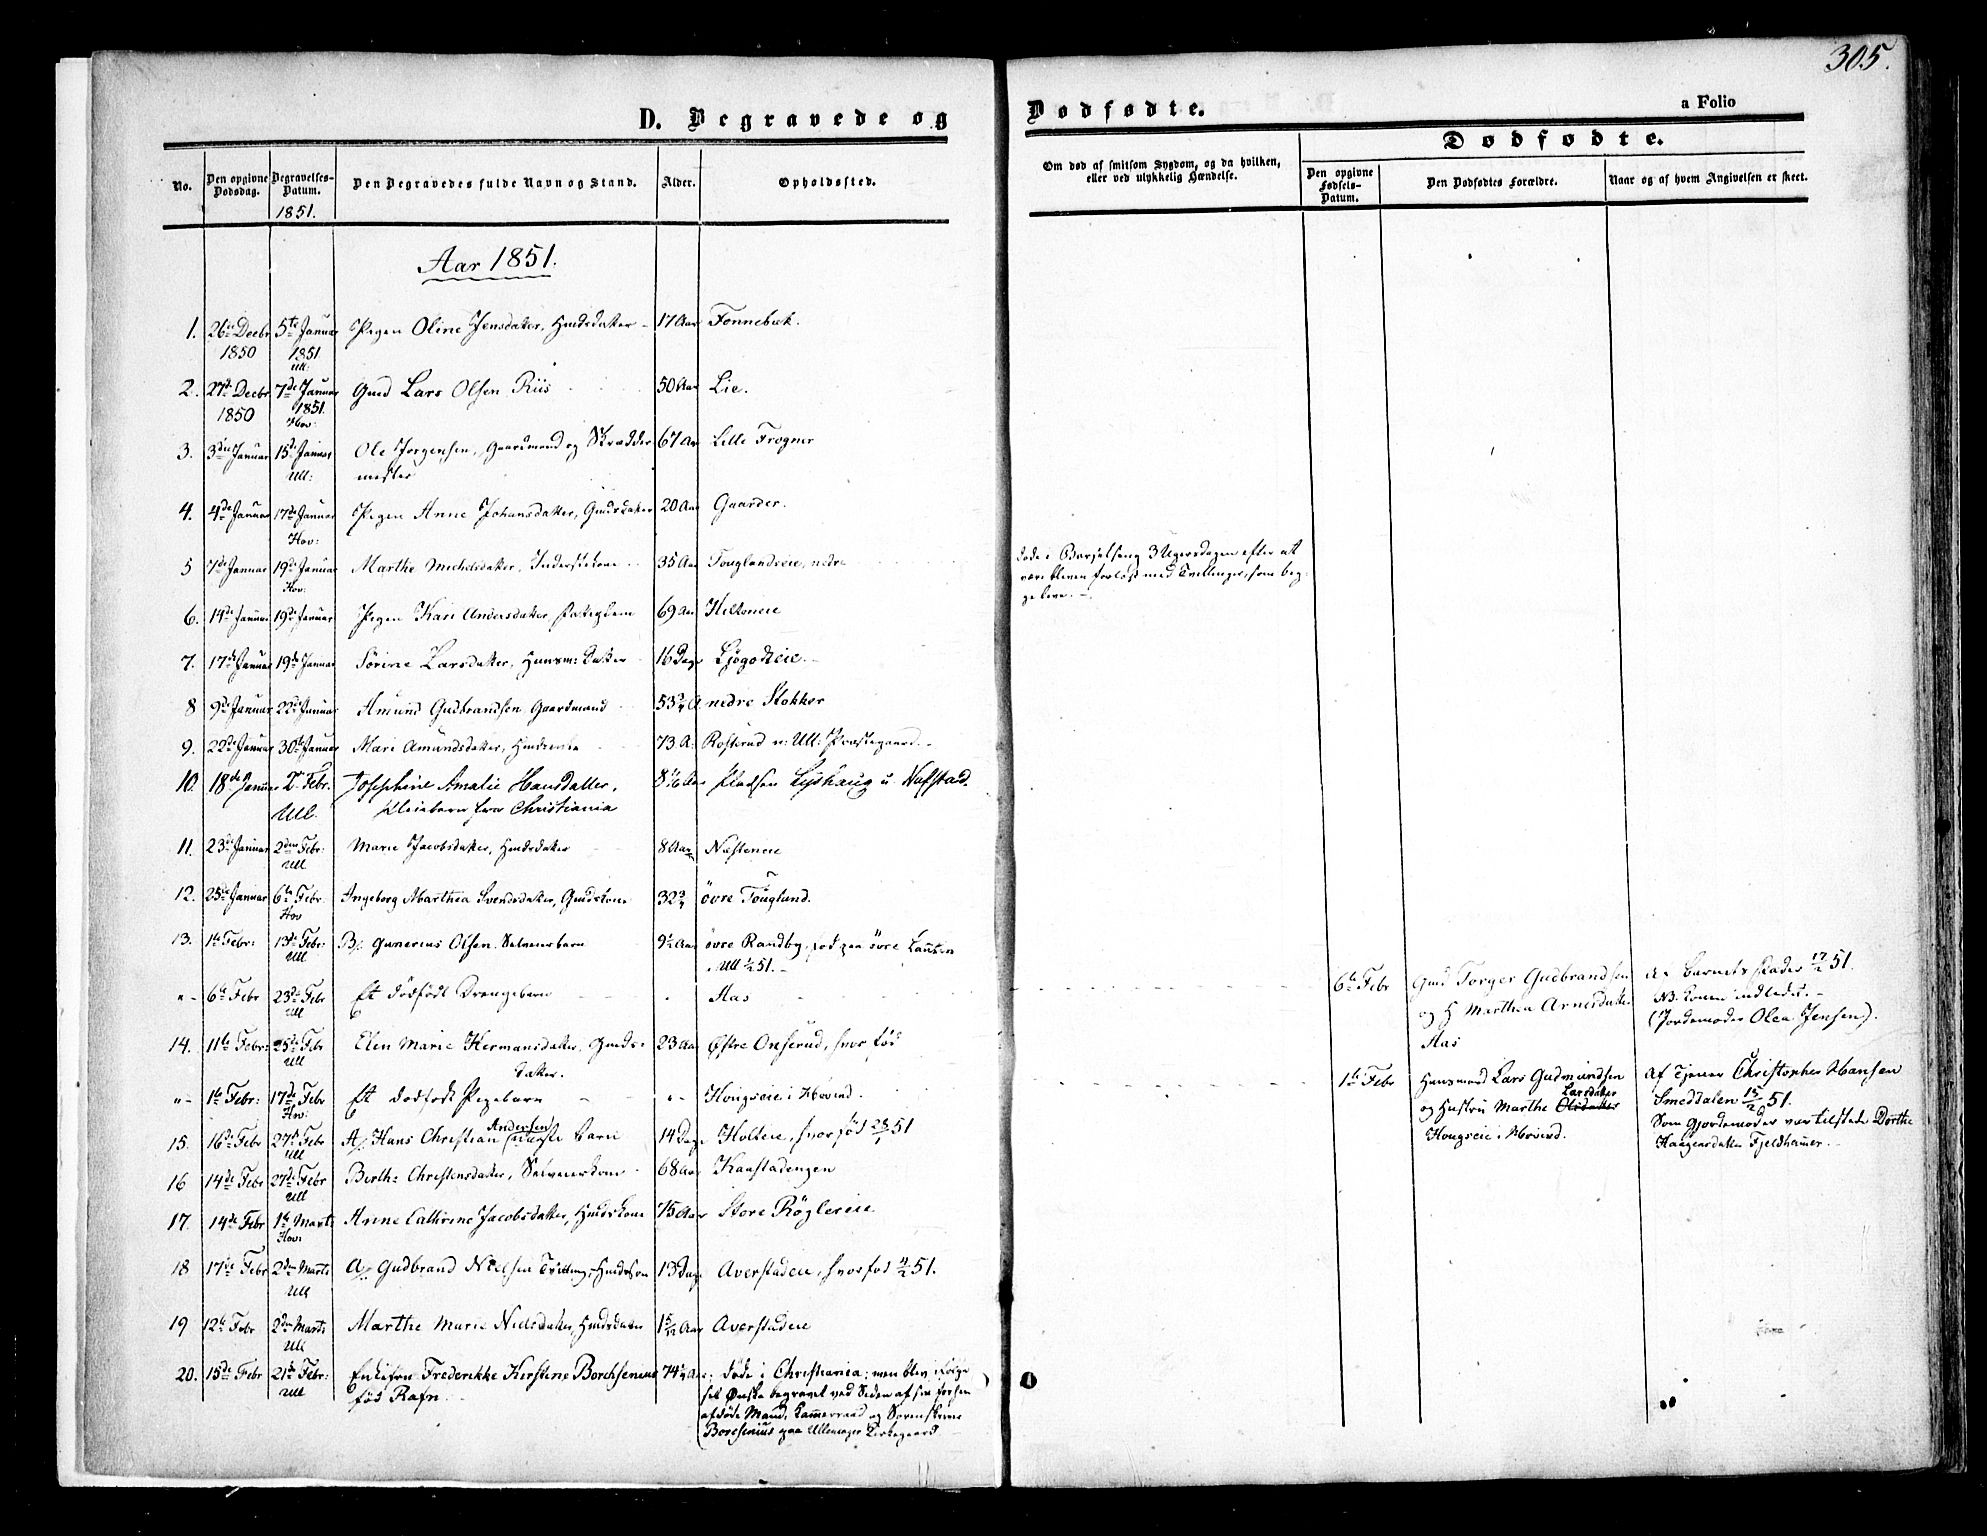 305.
D. Begravede og
Dødfødte.
a Folio
No.
Den opgivne Dødsdag.
Begravelses-Datum.
1851.
Den Begravedes fulde Navn og Stand.
Alder.
Opholdssted.
Om død af smitsom Sygdom, og da hvilken,
eller ved ulykkelig Hændelse.
Dødfødte.
Den opgivne Fødsels-Datum.
Den Dødfødtes Forældre.
Naar og af hvem Angivelsen er skeet.
Aar 1851.
1. 26de Decbr 5te Januar Pigen Oline Jensdatter, Huusdatter 17 Aar Fonnebæk.
1850 1851
Ull:
2. 27de Decbr 7de Januar Gmd Lars Olsen Riis 50 Aar Lie.
1850 1851.
Hov:
3. 3die Januar 15de Januar Ole Jørgensen, Gaardmand og Skrædder 67 Aar Lille Frogner
Ull: mester
4. 4de Januar 17de Januar Pigen Anne Johansdatter, Gmdsdatter 20 Aar Gaarder.
Hov:
5 7de Januar 19de Januar Marthe Michelsdatter, Inderstkone 35 Aar Fouglandseie, nedre
døde i Barselseng 3 Ugersdagen efter at
være bleven forløst med Tvillinger, som beg-
ge leve.
Hov:
6. 14de Januar 19de Januar Pigen Kari Andersdatter, Fattiglem 69 Aar Hiltoneie
7. 17de Januar 19de Januar Sørine Larsdatter, Huusm: Datter 16 Dage Ljøgodteie.
8 9de Januar 22de Januar Amund Gudbrandsen Gaardmand 53 3/4 A nedre Stokker
9. 22de Januar 30te Januar Mari Amundsdatter, 73 A: u: Ull: Præstegaard.
10. 18de Januar 2. Febr. Josephine Amalie Hansdatter, 8 Aar Pladsen Lyshaug u. Nafstad.
Ull. Pleiebarn fra Christiania
11. 23de Januar 2den Febr: Marie Jacobsdatter, Hmdsdatter 8 Aar Næsteneie
Ull
12. 25de Januar 6te Febr. Ingeborg Marthea Svendsdatter, Gmdskone 32 3/4 øvre Fougland.
Hov
13. 1te Febr: 13de Febr: B/: Gunerius Olsen. Selveierbarn 9 1/2 Aar øvre Randby, død paa øvre
Ull
Ull 1/2 51.
" 6te Febr 23de Febr Et dødfødt Drengebarn Aas
Ull
6te Febr Gmd Torger Gudbrandsen Af Barnets Fader 17/2 51.
og H Marthea Arnesdatter NB. Konen indledet.
Aas (Jordemoder Olea Jensen).
14. 11te Febr: 25de Febr Elen Marie Hermansdatter, Gmds- 23 Aar Østre Onserud, hvor død
Ull datter.
" 1te Febr: 17de Febr Et dødfødt Pigebarn " Hougseie i Hovind.
Hov:
1te Febr Huusmand Lars Gudmundsen Af Tjener Christopher Hansen
Larsdatter
og Hustru Marthe Olsdatter Smeddalen 15/2 51.
Hougseie i Hovind. Som Gjordemoder var tilstede Dorthe
Haagensdatter Fjeldhamer.
15. 16de Febr 27de Febr A/: Hans Christian Andersen uægte Barn 14 Dage Holteie, hvor død 28/1 51
Ull
16 14de Febr 27de Febr Berthe Christensdatter, Selveierkone 68 Aar Kaastadengen
Ull
17. 14de Febr 1te Marts Anne Cathrine Jacobsdatter, Hmdskone 75 Aar Store Røgleeie
Hov:
18 17de Febr 2den Marts A/: Gudbrand Nielsen Tvilling, Hmdssøn 13 Dage Averstadeie, hvor fød 4/2 51.
Ull
19 12te Febr 2den Marts Marthe Marie Nielsdatter, Hmdsbarn 1 5/12 Aar Averstadeie
Ull
20. 15de Febr 21de Febr: Enkefru Frederikke Kirstine Borchsenius 74 1/2 Aar: døde i Christiania; men blev i følge
Ull
fød Rafn.
sit Ønske begravet ved Siden af sin forhen
afdøde Mand, Kammerraad og Sorenskriver
Borchsenius paa Ullensager Kirkegaard